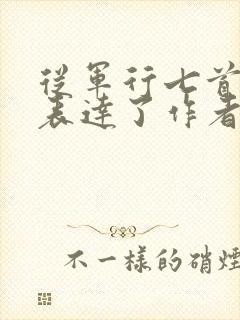 從軍行七首
表達了作者
不一樣的硝煙